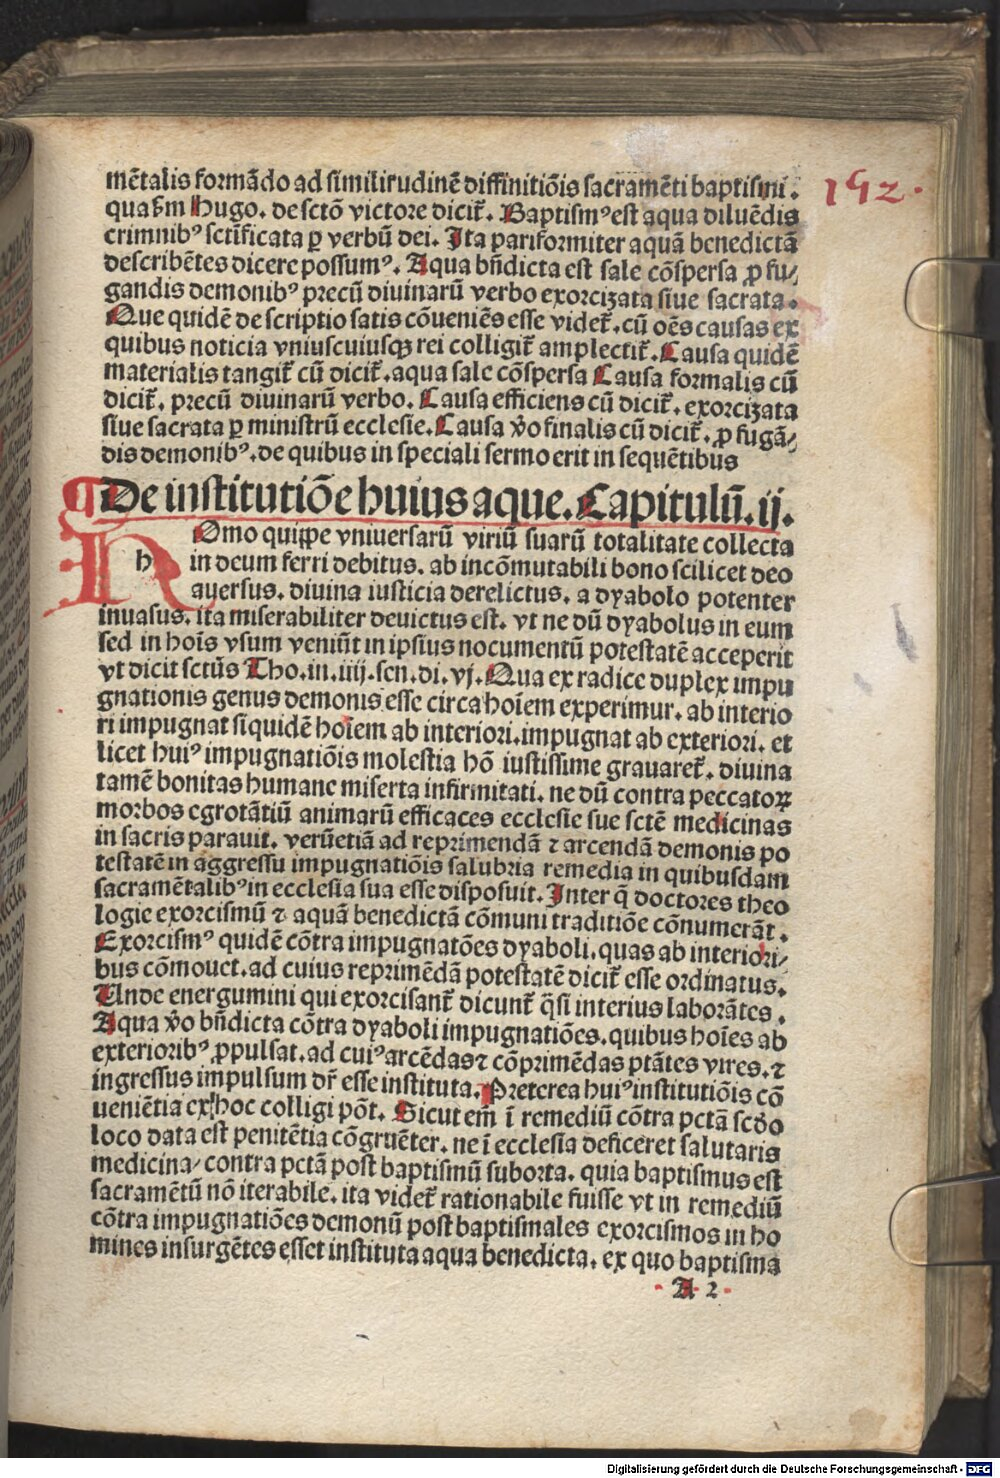 mētalis formādo ad similitudinē diffinitiōis sacramēti baptismi. 192.
qua ẜm Hugo. de sctō victore dicit̄. Baptismꝰ est aqua diluēdis
criminibꝰ sctīficata ꝑ verbū dei. Ita pariformiter aquā benedictā
describētes dicere possumꝰ. Aqua bn̄dicta est sale cōspersa ꝓ fu⸗
gandis demonibꝰ precū diuinarū verbo exorcizata siue sacrata.
Que quidē descriptio satis cōueniēs esse videt̄. cū oēs causas ex
quibus noticia vniuscuiusqꝫ rei colligit̄ amplectit̄. Causa quidē
materialis tangit̄ cū dicit̄. aqua sale cōspersa Causa formalis cū
dicit̄. precū diuinarū verbo. Causa efficiens cū dicit̄. exorcizata
siue sacrata ꝑ ministrū ecclesie. Causa v̄o finalis cū dicit̄. ꝓ fugā⸗
dis demonibꝰ. de quibus in speciali sermo erit in sequētibus
De institutiōe huius aque. Capitulū. ij.
hOmo quippe vniuersarū viriū suarū totalitate collecta
in deum ferri debitus. ab incōmutabili bono scilicet deo
auersus. diuina iusticia derelictus. a dyabolo potenter
inuasus. ita miserabiliter deuictus est. vt ne dū dyabolus in eum
sed in hoīs vsum veniūt in ipsius nocumentū potestatē acceperit
vt dicit sctūs Tho. in. iiij. sen. di. vj. Qua ex radice duplex impu
gnationis genus demonis esse circa hoīem experimur. ab interio
ri impugnat siquidē hoīem ab interiori. impugnat ab exteriori. et
licet huiꝰ impugnatiōis molestia hō iustissime grauaret̄. diuina
tamē bonitas humane miserta infirmitati. ne dū contra peccatoꝝ
morbos egrotātiū animarū efficaces ecclesie sue sctē medicinas
in sacris parauit. verūetiā ad reprimendā ⁊ arcendā demonis po
testatē in aggressu impugnatiōis salubria remedia in quibusdam
sacramētalibꝰ in ecclesia sua esse disposuit. Inter q̄ doctores theo
logie exorcismū ⁊ aquā benedictā cōmuni traditiōe cōnumerāt.
Exorcismꝰ quidē cōtra impugnatōes dyaboli. quas ab interiori⸗
bus cōmouet. ad cuius reprimēdā potestatē dicit̄ esse ordinatus.
Unde energumini qui exorcisant̄ dicunt̄ q̄si interius laborātes.
Aqua v̄o bn̄dicta cōtra dyaboli impugnatiōes. quibus hoīes ab
exterioribꝰ ꝓpulsat. ad cuiꝰ arcēdas ⁊ cōprimēdas ptātes vires. ⁊
ingressus impulsum dr̄ esse instituta. Preterea huiꝰ institutiōis cō
ueniētia ex hoc colligi pōt. Sicut em̄ ī remediū cōtra pctā scd̄o
loco data est penitētia cōgruēter. ne ī ecclesia deficeret salutaris
medicina/ contra pctā post baptismū suborta. quia baptismus est
sacramētū nō iterabile. ita videt̄ rationabile fuisse vt in remediū
cōtra impugnatiōes demonū post baptismales exorcismos in ho
mines insurgētes esset instituta aqua benedicta. ex quo baptisma
A 2
Digitalisierung gefördert durch die Deutsche Forschungsgemeinschaft - DFG